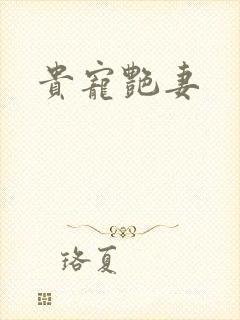 貴寵艷妻
珞夏